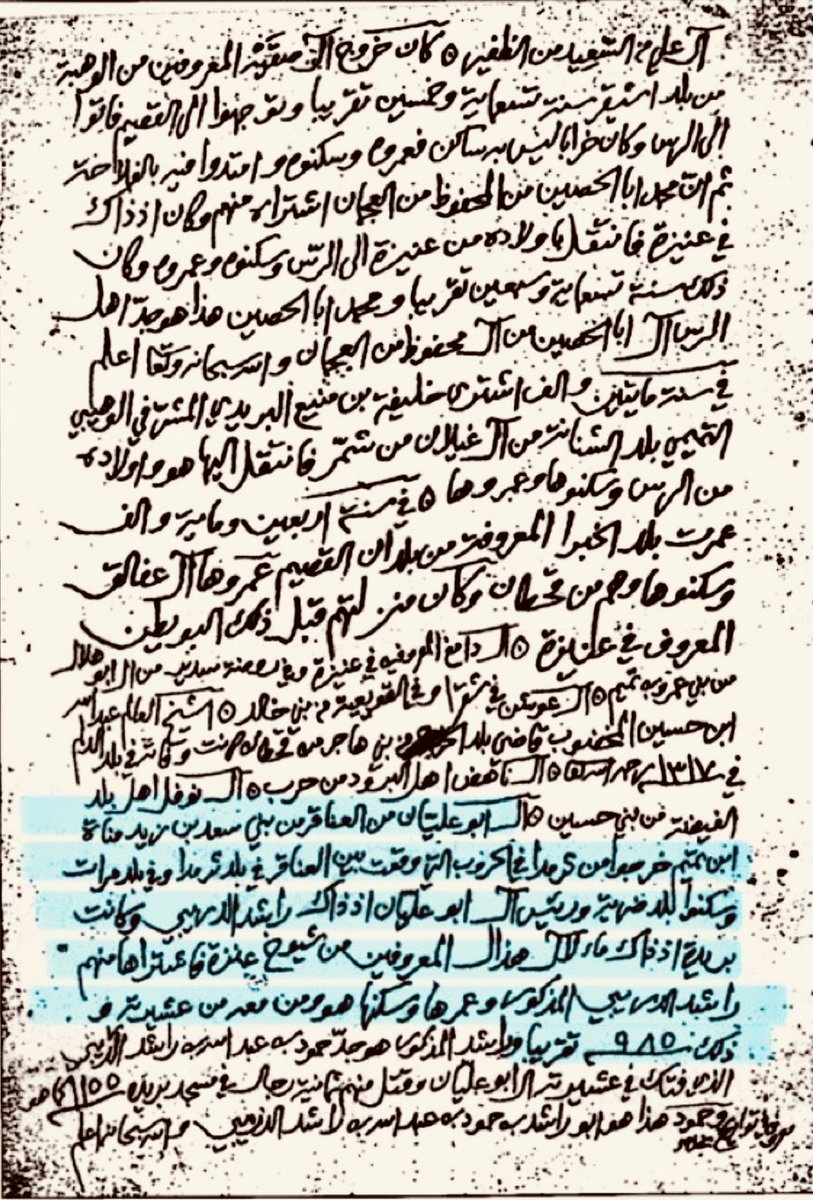 آل علي من السعيد من الظفير ٥ كان خروج آل صقيه المعروفين من الوهبة
من بلد اشيقر سنة تسعماية وخمسين تقريبا وتوجهوا الى القصيم فاتوا
الى الرس وكان خرابا ليس به ساكن فعمروه وسكنوه وامتدوا فيه بالفلاحة
ثم ان محمد ابا الحصين من المحفوظ من العجمان اشتراه منهم وكان اذ ذاك
في عنيزة فانتقل باولاده من عنيزة الى الرس وسكنوه وعمروه وكان
ذلك سنة تسعماية وسبعين تقريبا ومحمد ابا الحصين هذا هو جد اهل
الرس آل ابا الحصين من آل محفوظ من العجمان والله سبحانه وتعا اعلم
في سنة مايتين والف اشترى خليفة بن منيع البريدي المشرفي الوهيبي
التميمي بلد الشنانة من آل غيلان من شمّر فانتقل اليها هو واولاده
من الرس وسكنوها وعمروها ٥ في سنة اربعين وماية والف
عمرت بلد الخبرا المعروفة من بلدان القصيم عمروها آل عفالق
وسكنوها وهم من قحطان وكان منزلتهم قبل ذلك البويطن
المعروف في عنيزة ٥ آل دامغ المعروفين في عنيزة وفي روضة سدير من آل ابو هلال
من بني عمرو بن تميم ٥ آل عويشن في شقرا وفي القويعية من بني خالد ٥ الشيخ العالم عبد الله
ابن حسين المخضوب قاضي بلد الخرج من بني هاجر من قحطان كانت وفاته في بلد الدلم
في ١٣١٧ رحمه الله تعا ٥ آل ناهض اهل البرود من حرب ٥ آل نوفل اهل بلد
الفيضة من بني حسين ٥ آل ابو عليان من العناقر من بني سعد بن زيد مناة
ابن تميم خرجوا من ثرمدا في الحروب التي وقعت بين العناقر في بلد ثرمدا وفي بلد مرات
وسكنوا بلد ضرية ورئيس آل ابو عليان اذ ذاك راشد الدريبي وكانت
بريدة اذ ذاك ماء لآل هذال المعروفين من شيوخ عنزة فاشتراها منهم
راشد الدريبي المذكور وعمرها وسكنها هو ومن معه من عشيرته و
ذلك سنة ٩٨٥ تقريبا وراشد المذكور هو جد حمود بن عبد الله بن راشد الدريبي
الذي فتك في عشيرته آل ابو عليان وقتل منهم ثمانية رجال في مسجد بريدة سنة ١١٥٥ كما هو
وحمود هذا هو ابو راشد بن حمود بن عبد الله بن راشد الدريبي والله سبحانه اعلم